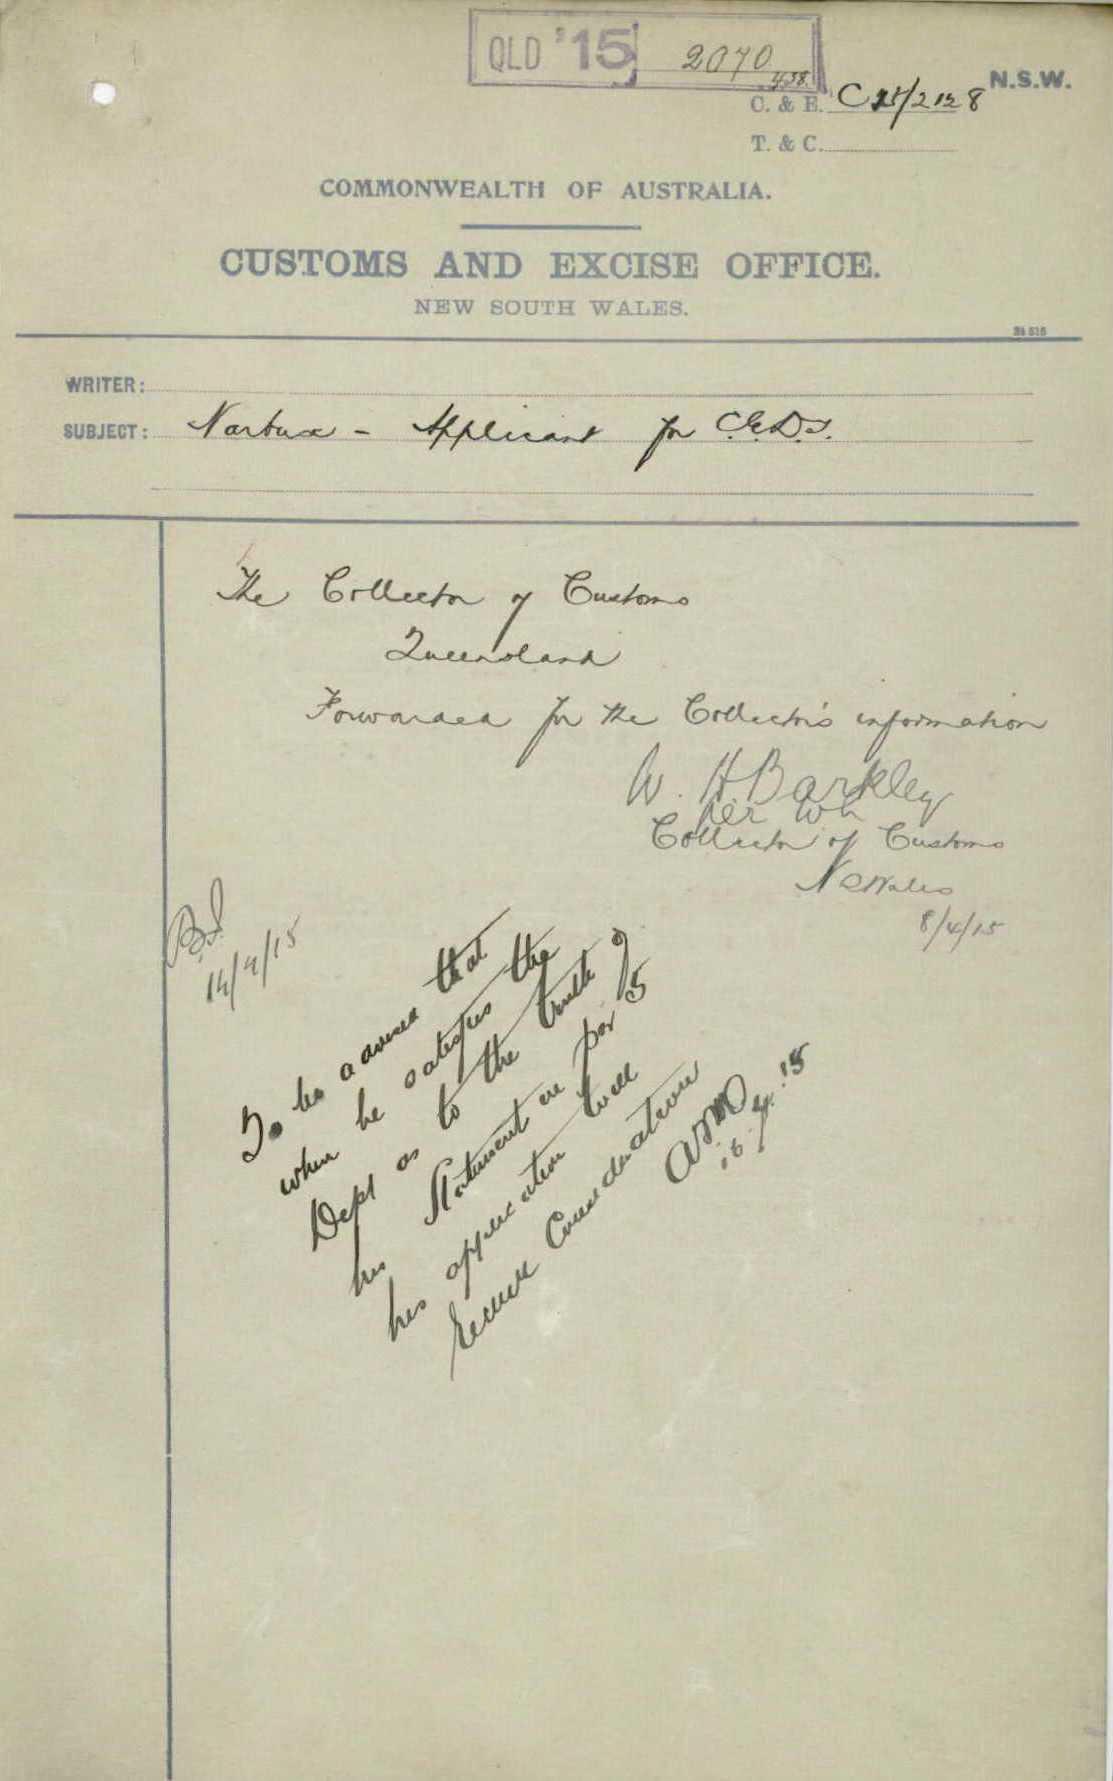 QLD '15 2070
438.
N.S.W.
C. & E. C 15/2128
T. & C.
COMMONWEALTH OF AUSTRALIA.
CUSTOMS AND EXCISE OFFICE.
NEW SOUTH WALES.
WRITER:
SUBJECT: Narbux - Applicant for C.E.D.T.
The Collector of Customs
Queensland
Forwarded for the Collector's information
W. H Barkley
per
Collector of Customs
N S Wales
8/4/15
14/4/15
To be advised that
when he satisfies the
Dept as to the truth of
his Statement in par 5
his application will
receive Consideration